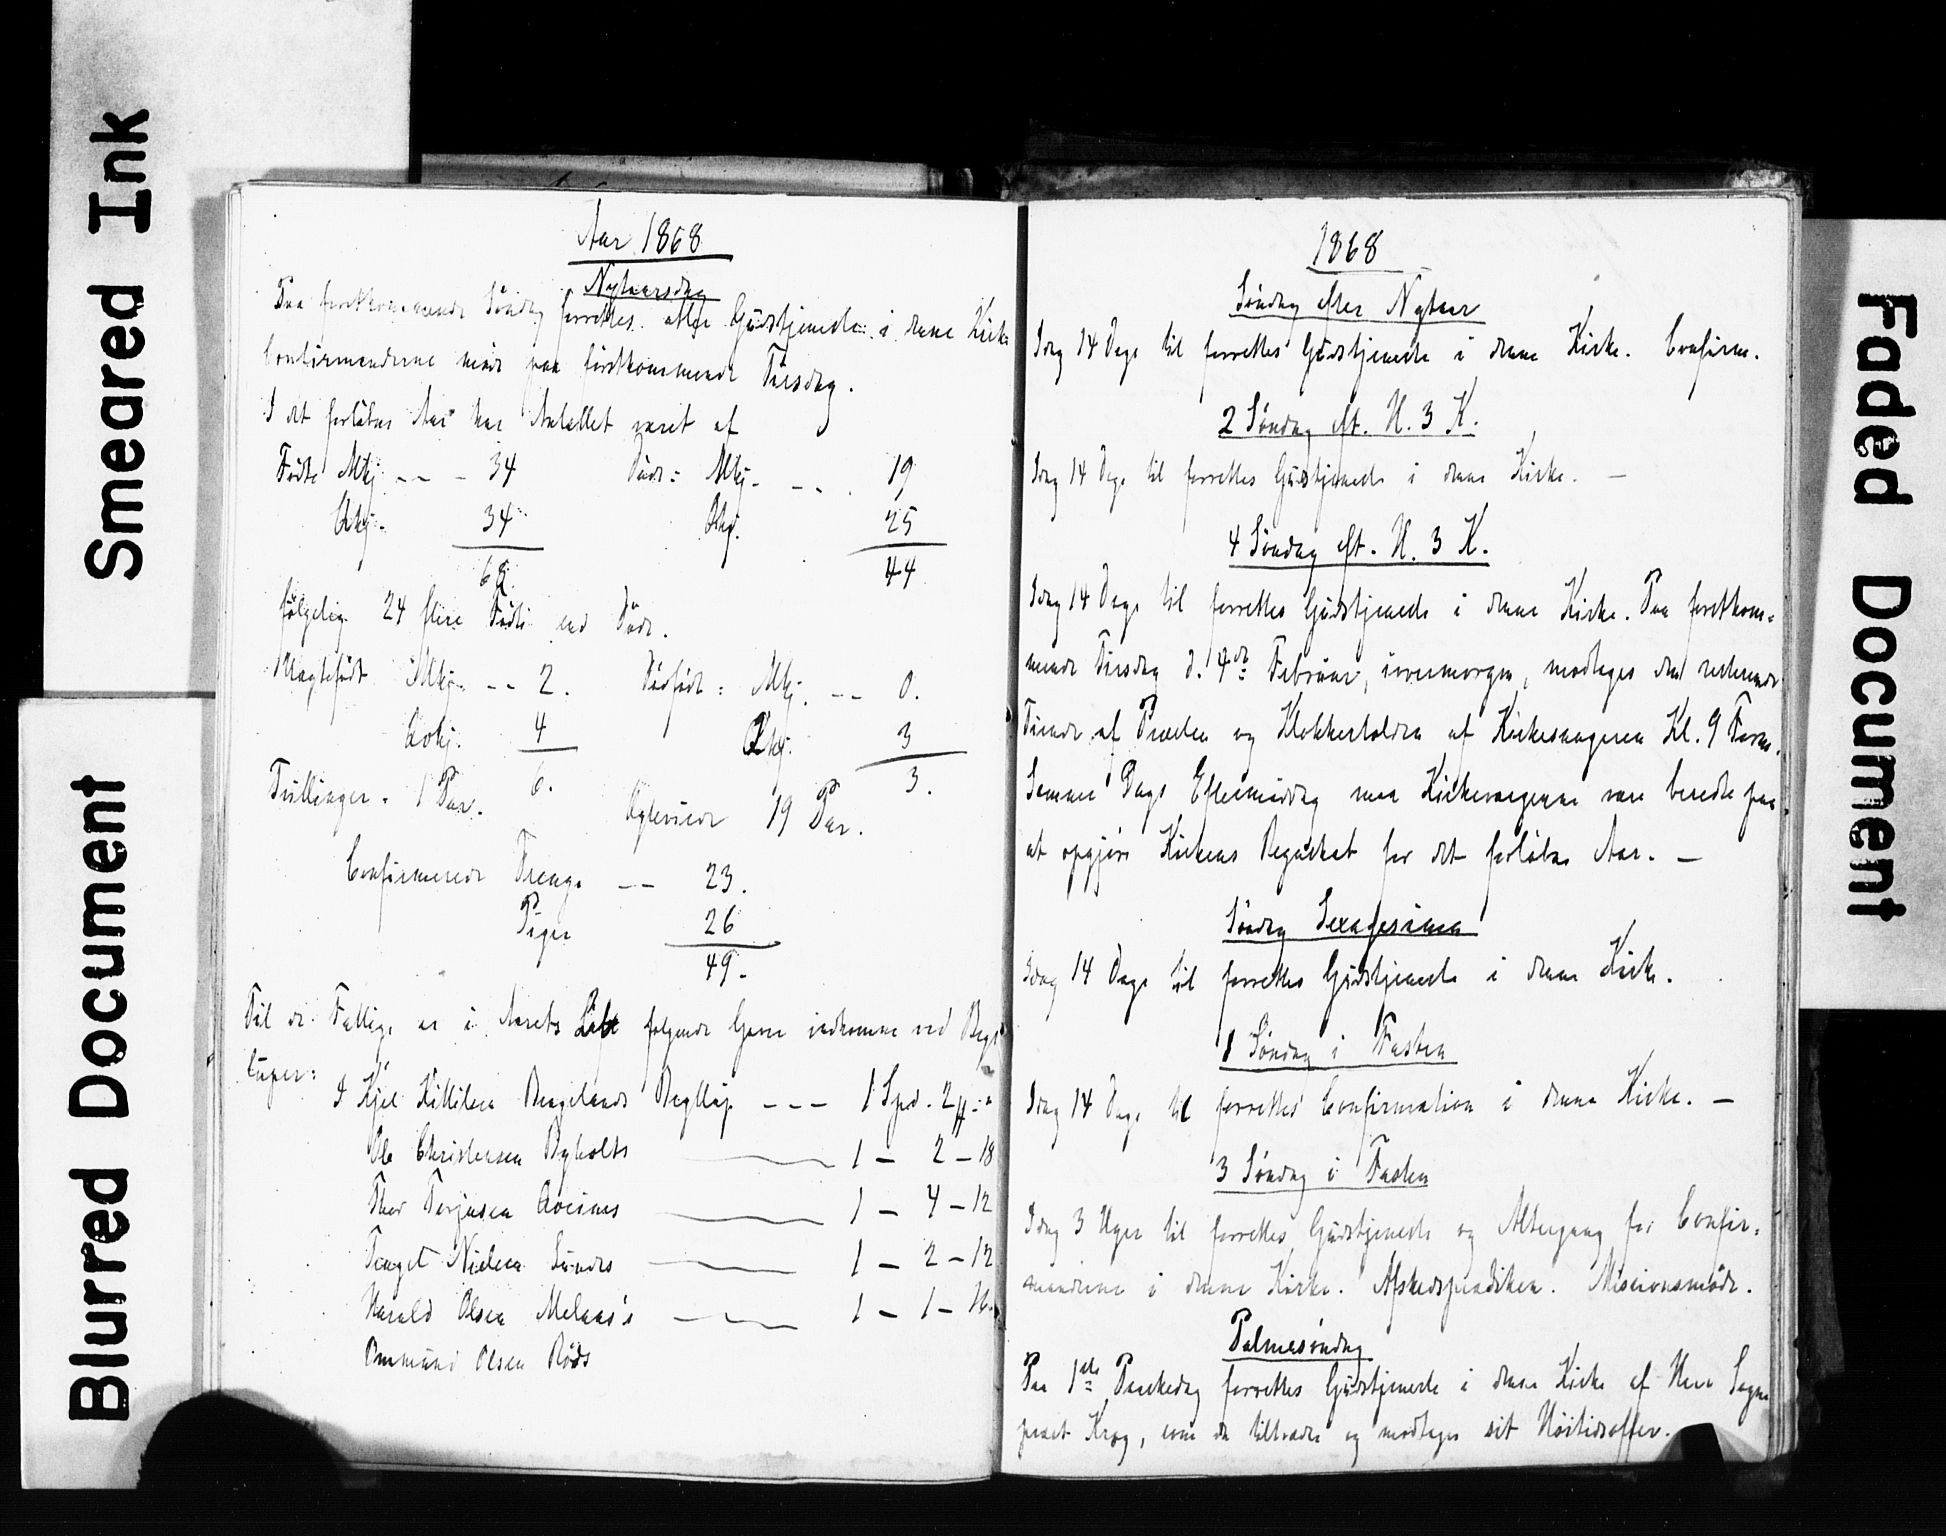 Smeared Ink
Blurred Document
Faded Document
Aar 1868
Nytaarsdag
Paa førstkommende Søndag forrettes atter Gudstjeneste i denne Kirke
Confirmanderne møde paa førstkommende Tirsdag.
I det forløbne Aar har Antallet været af
Fødte Mkj. -- - 34 Døde: Mkj. - -- . 19
Qkj. 34 Qkj. 25
68. 44
følgelig 24 flere Fødte end Døde.
Uægtefødt Mkj. -- 2. Dødfødt: Mkj. -- 0.
Qvkj. 4 Qkj. 3
6. 3.
Tvillinger. 1 Par. Ægteviede 19 Par.
Confirmerede Drenge -- 23.
Piger 26
49.
Til de Fattige er i Aarets Løb følgende Gaver indkomne ved
I Kjel Kittilsen Bergelands --- 1 Spd. 2
Ole Christensen Byholts 1 - 2 - 18
Thor Terjesen 1 - 4 - 12
Nielsen Sundes 1 - 2 - 12
Harald Olsen Melaas's 1 - 1 -
Ommund Olsen Røds
1868
Søndag efter Nytaar
Idag 14 Dage til forrettes Gudstjeneste i denne Kirke. Confirm.
2 Søndag eft. H. 3 K.
Idag 14 Dage til forrettes Gudstjeneste i denne Kirke. -
4 Søndag eft. H. 3 K.
Idag 14 Dage til forrettes Gudstjeneste i denne Kirke. Paa førstkom-
mende Tirsdag d. 4de Februar, iovermorgen, modtages den resterende
Tiende af Præsten og Klokkertolden af Kirkesangeren Kl. 9 Form.
Samme Dags Eftermiddag maa Kirkeværgerne være beredte paa
at opgjøre Kirkens Regnskab for det forløbne Aar. -
Søndag Sexagesima
Idag 14 Dage til forrettes Gudstjeneste i denne Kirke.
1 Søndag i Fasten
Idag 14 Dage til forrettes Confirmation i denne Kirke. -
3 Søndag i Fasten
Idag 3 Uger til forrettes Gudstjeneste og Altergang for Confir-
manderne i denne Kirke. Afskedsprædiken. Missionsmøde.
Palmesøndag
Paa 1ste Paaskedag forrettes Gudstjeneste i denne Kirke af Herr Sogne
præst Krog, som da tiltræder og modtager sit Høitidsoffer.